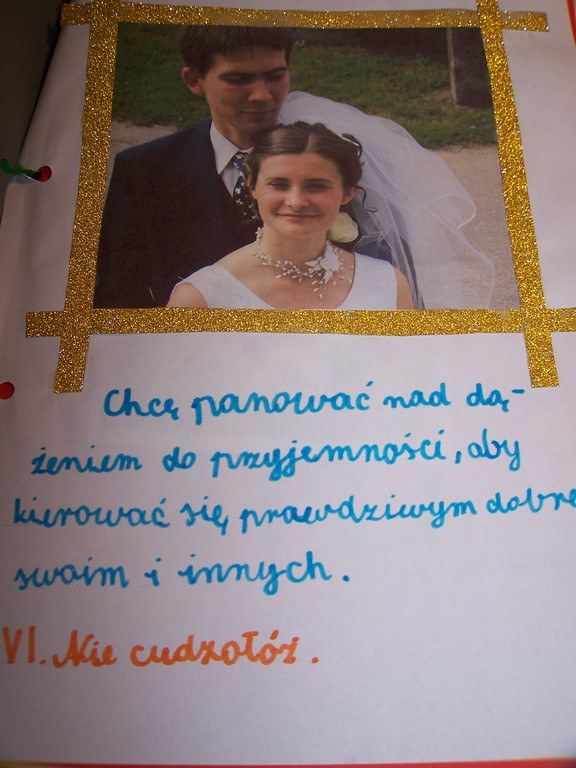 Chcę panować nad dą-
żeniem do przyjemności, aby
kierować się prawdziwym dobre
swoim i innych.
VI. Nie cudzołóż.